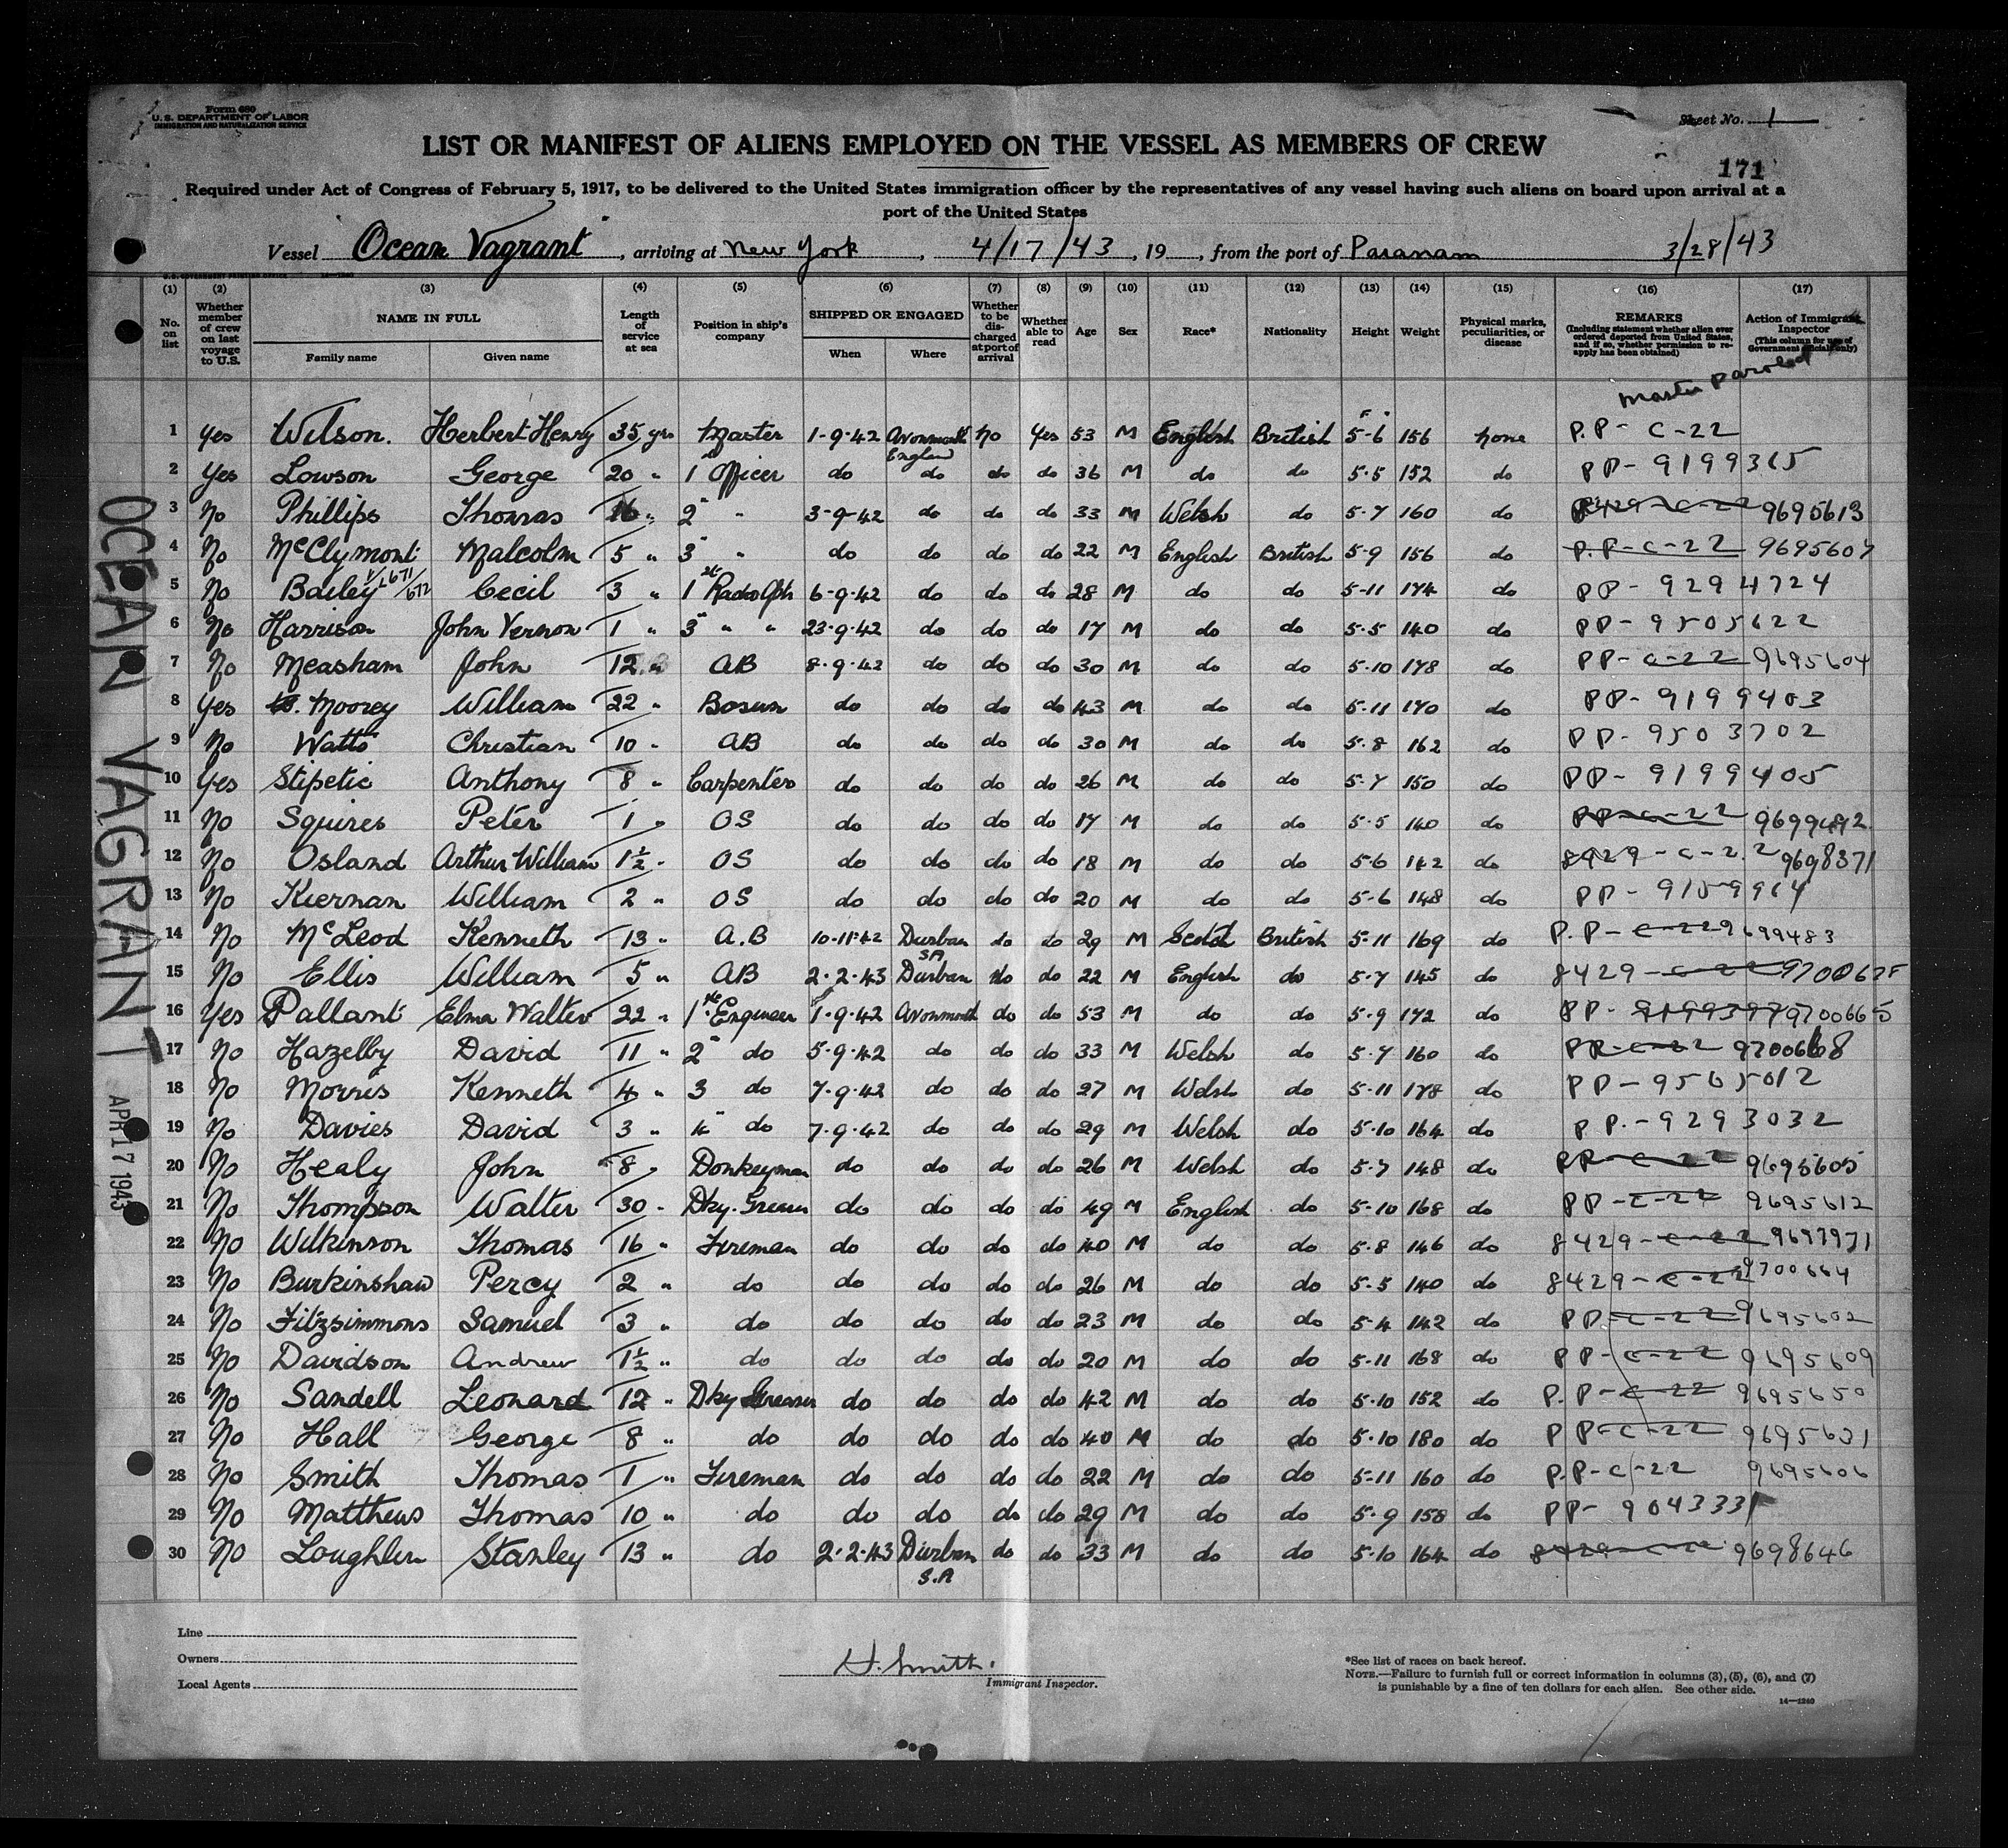 Form 680
U.S. DEPARTMENT OF LABOR
IMMIGRATION AND NATURALIZATION SERVICE
Sheet No. 1
LIST OR MANIFEST OF ALIENS EMPLOYED ON THE VESSEL AS MEMBERS OF CREW
171
Required under Act of Congress of February 5, 1917, to be delivered to the United States immigration officer by the representatives of any vessel having such aliens on board upon arrival at a
port of the United States
Vessel Ocean Vagrant, arriving at New York, 4/17/43, 19, from the port of Paranam 3/28/43
(1) (2) (3) (4) (5) (6) (7) (8) (9) (10) (11) (12) (13) (14) (15) (16) (17)
No. on list
Whether member of crew on last voyage to U.S.
NAME IN FULL
Family name
Given name
Length of service at sea
Position in ship's company
SHIPPED OR ENGAGED
When
Where
Whether to be discharged at port of arrival
Whether able to read
Age
Sex
Race*
Nationality
Height
Weight
Physical marks, peculiarities, or disease
REMARKS
(Including statement whether alien ever ordered deported from United States, and if so, whether permission to reapply has been obtained)
Action of Immigrant Inspector
(This column for use of Government officials only)
Master Paroled
1 Yes Wilson. Herbert Henry 35 yrs Master 1-9-42 Avonmouth England no Yes 53 M English British 5-6 156 none P.P- C-22
2 Yes Lowson George 20 " 1st Officer do do do do 36 M do do 5-5 152 do PP- 9199365
3 No Phillips Thomas 16 " 2" " 3-9-42 do do do 33 M Welsh do 5-7 160 do 9695613
4 No McClymont Malcolm 5 " 3" " do do do do 22 M English British 5-9 156 do P.P-C-22 9695607
5 No Bailey Cecil 3 " 1st Radio Oph 6-9-42 do do do 28 M do do 5-11 174 do PP- 9294724
6 No Harrison John Vernon 1 " 3" " " 23-9-42 do do do 17 M do do 5-5 140 do PP- 9505622
7 No Measham John 12 " AB 8-9-42 do do do 30 M do do 5-10 178 do PP-C-22 9695604
8 Yes Moorey William 22 " Bosun do do do do 43 M do do 5-11 170 do PP- 9199403
9 No Watts Christian 10 " AB do do do do 30 M do do 5-8 162 do PP- 9503702
10 Yes Stipetic Anthony 8 " Carpenter do do do do 26 M do do 5-7 150 do PP- 9199405
11 No Squires Peter 1 " OS do do do do 17 M do do 5-5 140 do PP-C-22
12 No Osland Arthur William 1½ " OS do do do do 18 M do do 5-6 142 do 8429-C-22 9698371
13 No Kiernan William 2 " OS do do do do 20 M do do 5-6 148 do PP- 9159964
14 No McLeod Kenneth 13 " A.B 10-11-42 Durban SA do do 29 M Scotch British 5-11 169 do P.P-C-22 9699483
15 No Ellis William 5 " AB 2-2-43 Durban do do 22 M English do 5-7 145 do 8429-C-22
16 Yes Pallant Elma Walter 22 " 1st Engineer 1-9-42 Avonmouth do do 53 M do do 5-9 172 do PP- 9199397 9700665
17 No Hazelby David 11 " 2" do 5-9-42 do do do 33 M Welsh do 5-7 160 do PP-C-22 9700668
18 No Morris Kenneth 4 " 3 do 7-9-42 do do do 27 M Welsh do 5-11 178 do PP- 9505012
19 No Davies David 3 " 4" do 7-9-42 do do do 29 M Welsh do 5-10 164 do P.P.- 9293032
20 No Healy John 8 " Donkeyman do do do do 26 M Welsh do 5-7 148 do PP-C-22 9695605
21 No Thompson Walter 30 " Dky. Greaser do do do do 49 M English do 5-10 168 do PP-C-22 9695612
22 No Wilkinson Thomas 16 " Fireman do do do do 40 M do do 5-8 146 do 8429-C-22 9697971
23 No Burkinshaw Percy 2 " do do do do do 26 M do do 5-5 140 do 8429-C-22 9700664
24 No Fitzsimmons Samuel 3 " do do do do do 23 M do do 5-4 142 do PP-C-22 9695602
25 No Davidson Andrew 1½ " do do do do do 20 M do do 5-11 168 do PP-C-22 9695609
26 No Sandell Leonard 12 " Dky Greaser do do do do 42 M do do 5-10 152 do P.P-C-22 9695650
27 No Hall George 8 " do do do do do 40 M do do 5-10 180 do PP-C-22 9695631
28 No Smith Thomas 1 " Fireman do do do do 22 M do do 5-11 160 do P.P-C-22 9695606
29 No Matthews Thomas 10 " do do do do do 29 M do do 5-9 158 do PP- 9043331
30 No Loughlin Stanley 13 " do 2-2-43 Durban S.A do do 33 M do do 5-10 164 do 9698646
OCEAN VAGRANT
APR 17 1943
Line
Owners
Local Agents
H. Smith.
Immigrant Inspector.
*See list of races on back hereof.
NOTE.—Failure to furnish full or correct information in columns (3), (5), (6), and (7)
is punishable by a fine of ten dollars for each alien. See other side.
14—1240